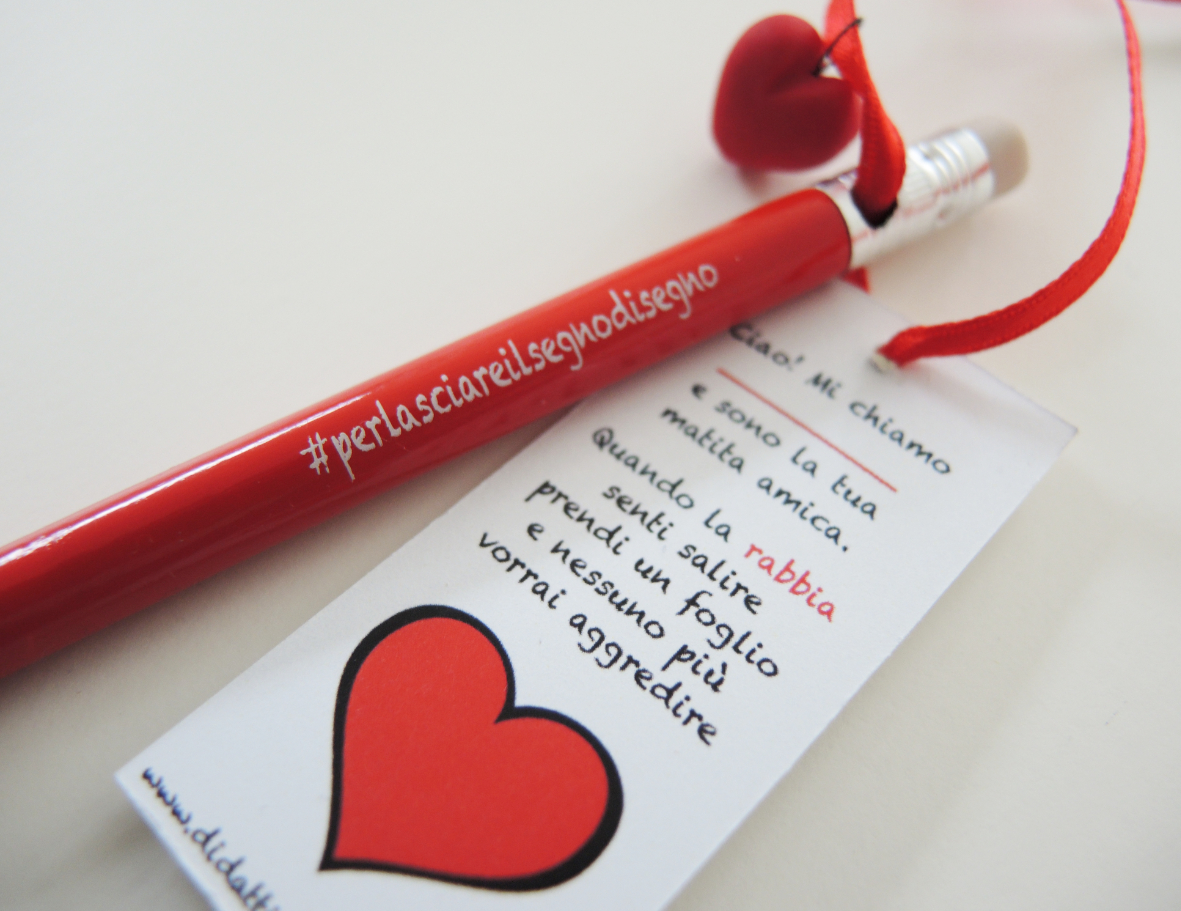 #perlasciareilsegnodisegno
Ciao! Mi chiamo
e sono la tua
matita amica.
Quando la rabbia
senti salire
prendi un foglio
e nessuno più
vorrai aggredire